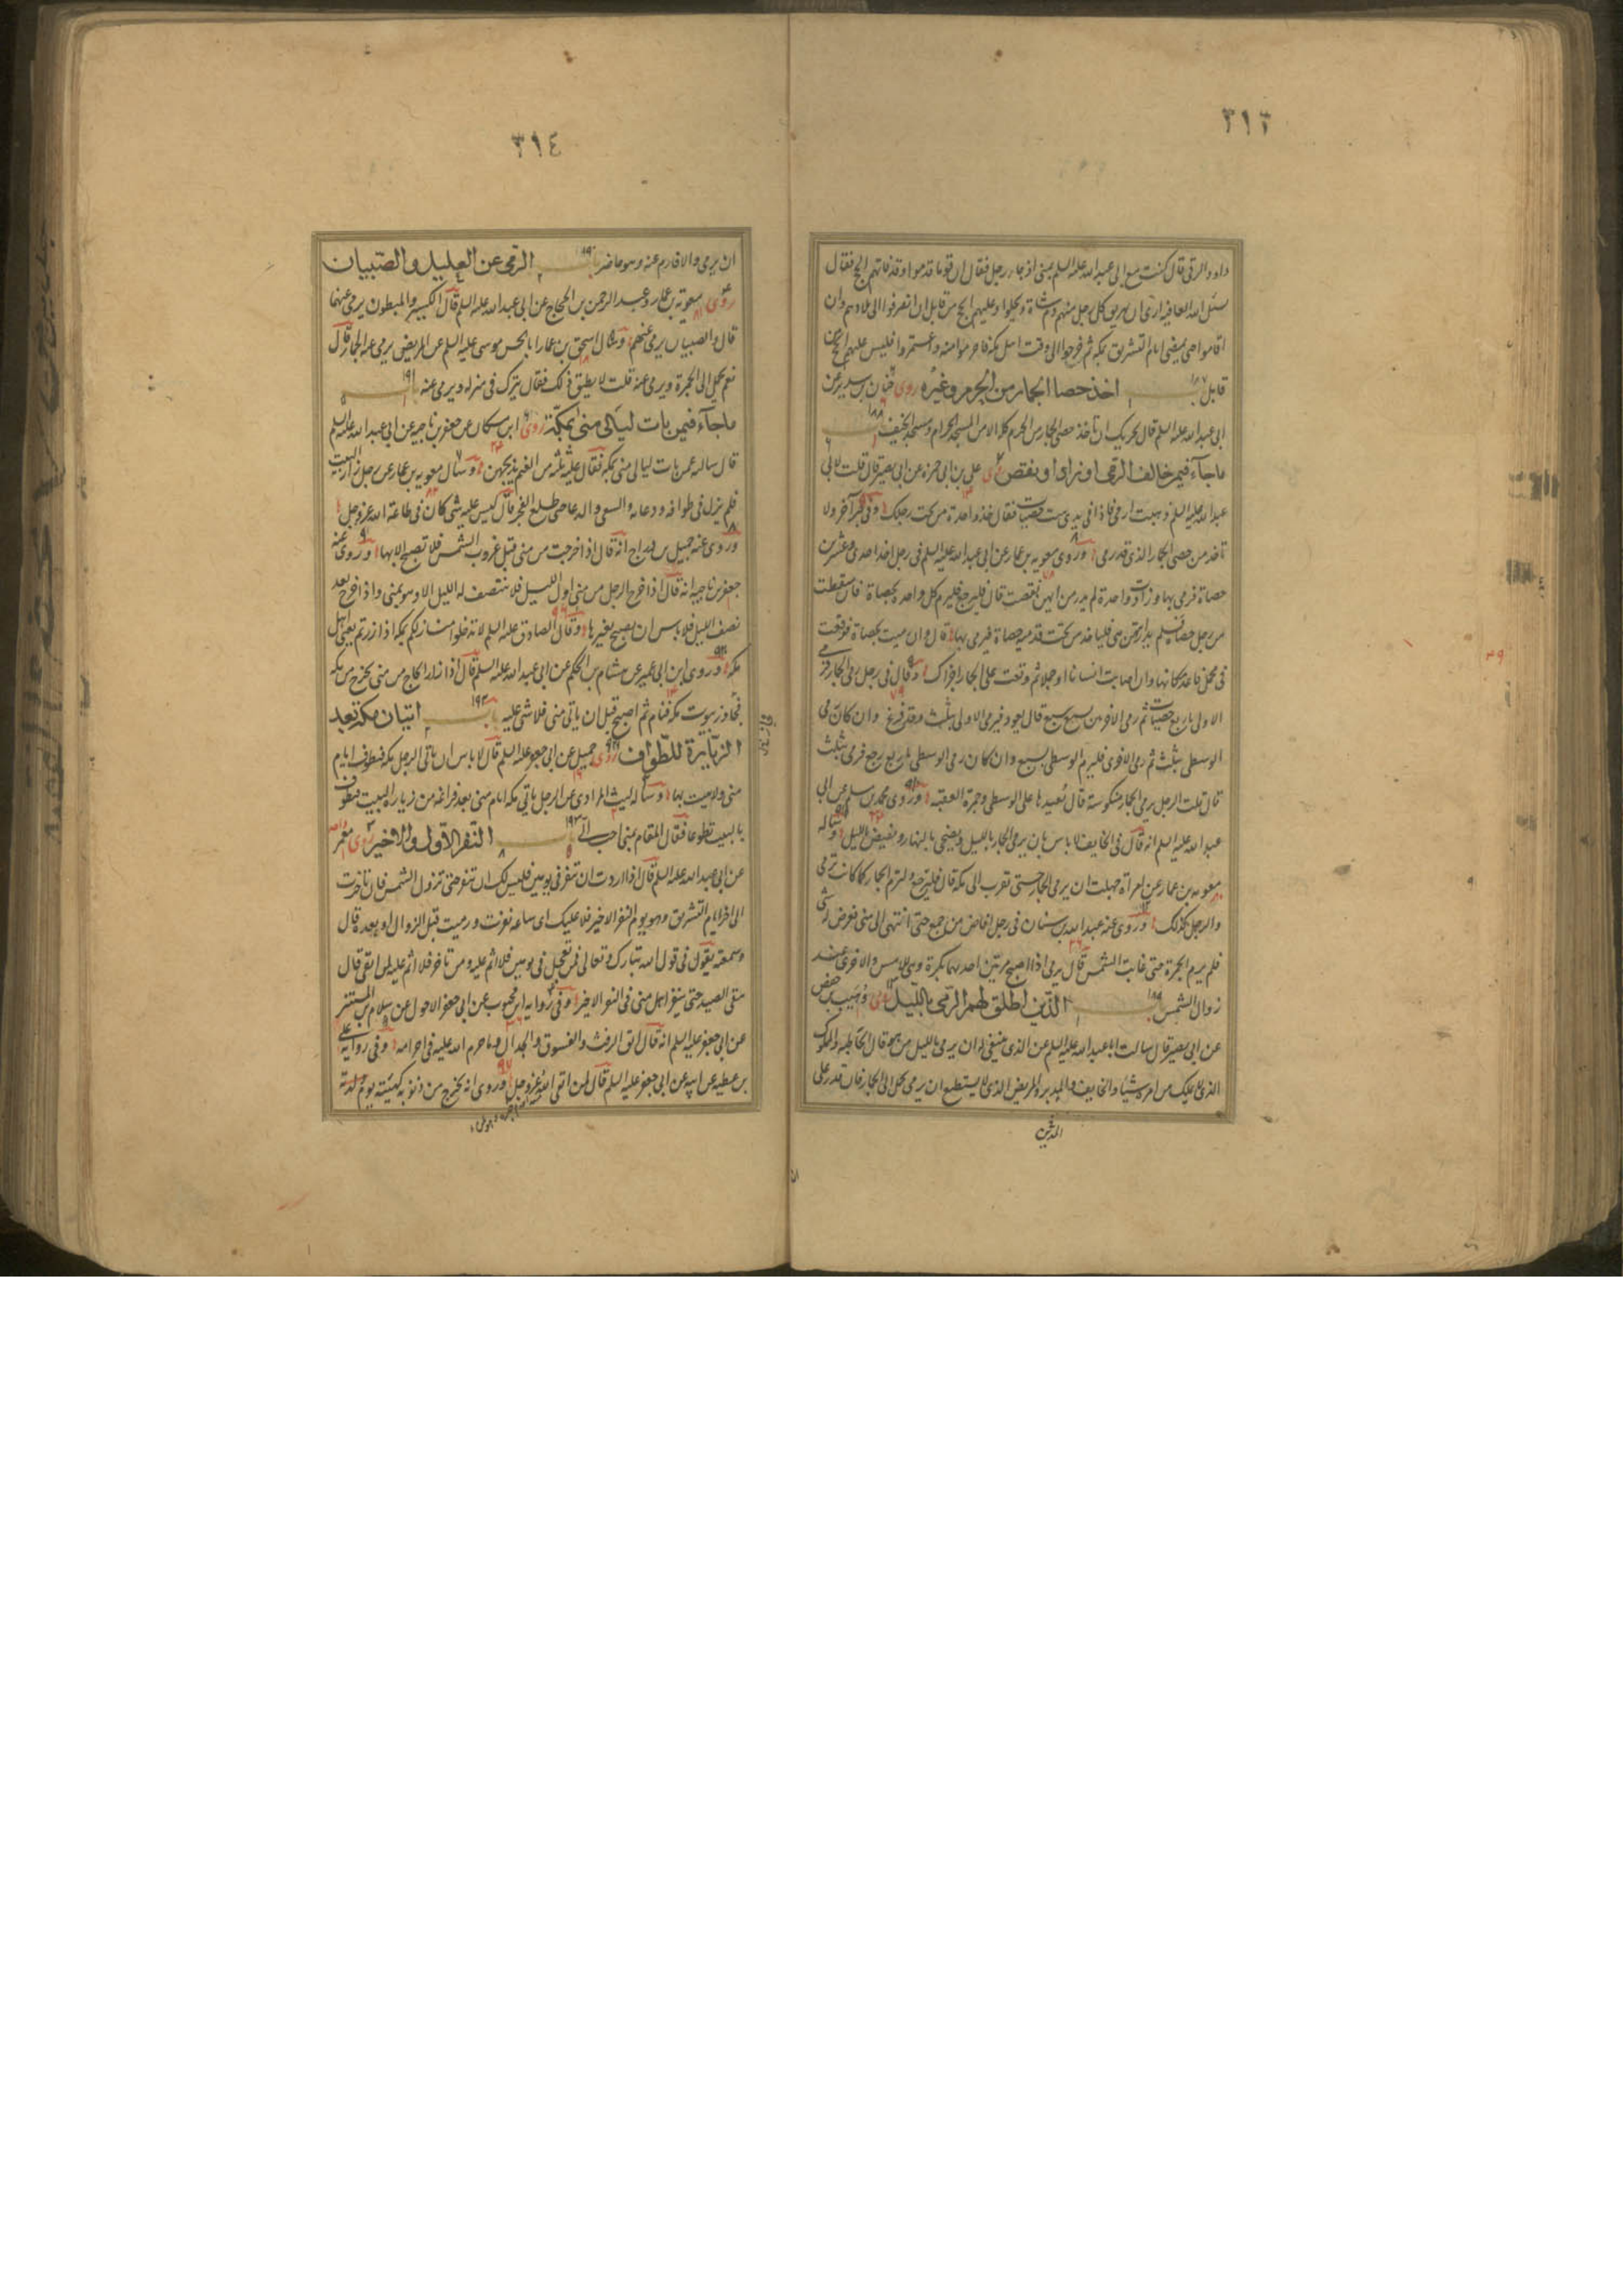 ٣١٣
داود الرقي قال كنت مع ابي عبد الله عليه السلم بمنى اذ جاء رجل فقال ان قوما قدموا وقد فاتهم الحج فقال
نسئل الله العافية ارى ان يهريق كل رجل منهم دم شاة ويحلوا وعليهم الحج من قابل ان انصرفوا الى بلادهم وان
اقاموا حتى يمضي ايام التشريق بمكة ثم خرجوا الى وقت اهل مكة فاحرموا منه واعتمروا فليس عليهم الحج من
قابل باب ١٨٧ اخذ حصا الجمار من الحرم وغيره روى حنان بن سدير عن
ابي عبد الله عليه السلم قال يجزيك ان تاخذ حصى الجمار من الحرم كله الا من المسجد الحرام ومسجد الخيف ١٨٨
ما جآء فيمن خالف الرمي او زاد او نقص روى علي بن ابي حمزة عن ابي بصير قال قلت لابي
عبد الله عليه السلم ذهبت ارمي فاذا في يدي ست حصيات فقال خذ واحدة من تحت رجليك وفي خبر آخر ولا
تاخذ من حصى الجمار الذي قد رمي وروى معوية بن عمار عن ابي عبد الله عليه السلم في رجل اخذ احدى وعشرين
حصاة فرمى بها وزادت واحدة لم يدر من ايهن نقصت قال فليرجع فليرم كل واحدة بحصاة فان سقطت
من رجل حصاة فلم يدر ايتهن هي فلياخذ من تحت قدميه حصاة فيرمي بها قال وان رميت بحصاة فوقعت
في محمل فاعد مكانها وان اصابت انسانا او جملا ثم وقعت على الجمار اجزاك وقال في رجل رمى الجمار فرمى
الاولى باربع حصيات ثم رمى الاخرتين بسبع سبع قال يعود فيرمي الاولى بثلث وقد فرغ وان كان رمى
الوسطى بثلث ثم رمى الاخرى فليرم الوسطى بسبع وان كان رمى الوسطى باربع رجع فرمى بثلث
قال قلت الرجل يرمي الجمار منكوسة قال يعيدها على الوسطى وجمرة العقبة وروى محمد بن مسلم عن ابي
عبد الله عليه السلم انه قال في الخايف لا باس بان يرمي الجمار بالليل ويضحي بالليل ويفيض بالليل وساله
معوية بن عمار عن امراة جهلت ان يرمي الجمار حتى نفرت الى مكة قال فلترجع ولترم الجمار كما كانت ترمي
والرجل كذلك وروى عنه عبد الله بن سنان في رجل افاض من جمع حتى انتهى الى منى فعرض له شئ
فلم يرم الجمرة حتى غابت الشمس قال يرمي اذا اصبح مرتين احديهما بكرة وهي للامس والاخرى عند
زوال الشمس باب ١٨٩ الذين اطلق لهم الرمي بالليل روى وهيب بن حفص
عن ابي بصير قال سالت ابا عبد الله عليه السلم عن الذي ينبغي له ان يرمي بالليل من هو قال الحاطبة والمملوك
الذي لا يملك من امره شيئا والخايف والمدين والمريض الذي لا يستطيع ان يرمي يحمل الى الجمار فان قدر على
المدين
٣١٤
ان يرمي والا فارم عنه وهو حاضر باب ١٩٠ الرمي عن العليل والصبيان
روى معوية بن عمار وعبد الرحمن بن الحجاج عن ابي عبد الله عليه السلم قال الكسير والمبطون يرمى عنهما
قال والصبيان يرمى عنهم وسال اسحق بن عمار ابا الحسن موسى عليه السلم عن المريض يرمى عنه الجمار قال
نعم يحمل الى الجمرة ويرمى عنه قلت لا يطيق ذلك فقال يترك في منزله ويرمى عنه باب ١٩١
ما جآء فيمن بات ليالى منى بمكة روى ابن مسكان عن جعفر بن ناجية عن ابي عبد الله عليه السلم
قال سالته عمن بات ليالي منى بمكة فقال عليه ثلثة من الغنم يذبحهن وسال معوية بن عمار عن رجل زار البيت
فلم يزل في طوافه ودعائه والسعي والدعا حتى طلع الفجر قال ليس عليه شئ كان في طاعة الله عز وجل
وروى عنه جميل بن دراج انه قال اذا خرجت من منى قبل غروب الشمس فلا تصبح الا بها وروى عنه
جعفر بن ناجية انه قال اذا خرج الرجل من منى اول الليل فلا ينتصف له الليل الا وهو بمنى واذا خرج بعد
نصف الليل فلا باس ان يصبح بغيرها وقال الصادق عليه السلم لا تدخلوا منازلكم بمكة اذا زرتم يعني اهل
مكة وروى ابن ابي عمير عن هشام بن الحكم عن ابي عبد الله عليه السلم قال اذا زار الحاج من منى يخرج من مكة
فجاوز بيوت مكة فنام ثم اصبح قبل ان ياتي منى فلا شئ عليه باب ١٩٢ اتيان مكة بعد
الزيارة للطواف روى جميل عن ابي عبد الله عليه السلم قال لا باس ان ياتي الرجل مكة فيطوف ايام
منى ولا يبيت بها وساله ليث المرادي عن الرجل ياتي مكة ايام منى بعد فراغه من زيارة البيت فيطوف
بالبيت تطوعا فقال المقام بمنى احب الي باب ١٩٣ النفر الاول والاخير روى
عن ابي عبد الله عليه السلم قال اذا اردت ان تنفر في يومين فليس لك ان تنفر حتى تزول الشمس فان تاخرت
الى اخر ايام التشريق وهو يوم النفر الاخير فلا عليك اي ساعة نفرت ورميت قبل الزوال او بعده قال
وسمعته يقول في قول الله تبارك وتعالى فمن تعجل في يومين فلا اثم عليه ومن تاخر فلا اثم عليه لمن اتقى قال
يتقي الصيد حتى ينفر اهل منى في النفر الاخير وفي رواية ابن محبوب عن ابي جعفر الاحول عن سلام بن المستنير
عن ابي جعفر عليه السلم انه قال لمن اتقى الرفث والفسوق والجدال وما حرم الله عليه في احرامه وفي رواية علي
بن عطية عن ابيه عن ابي جعفر عليه السلم قال لمن اتقى الله عز وجل وروى انه يخرج من ذنوبه كهيئة يوم ولدته